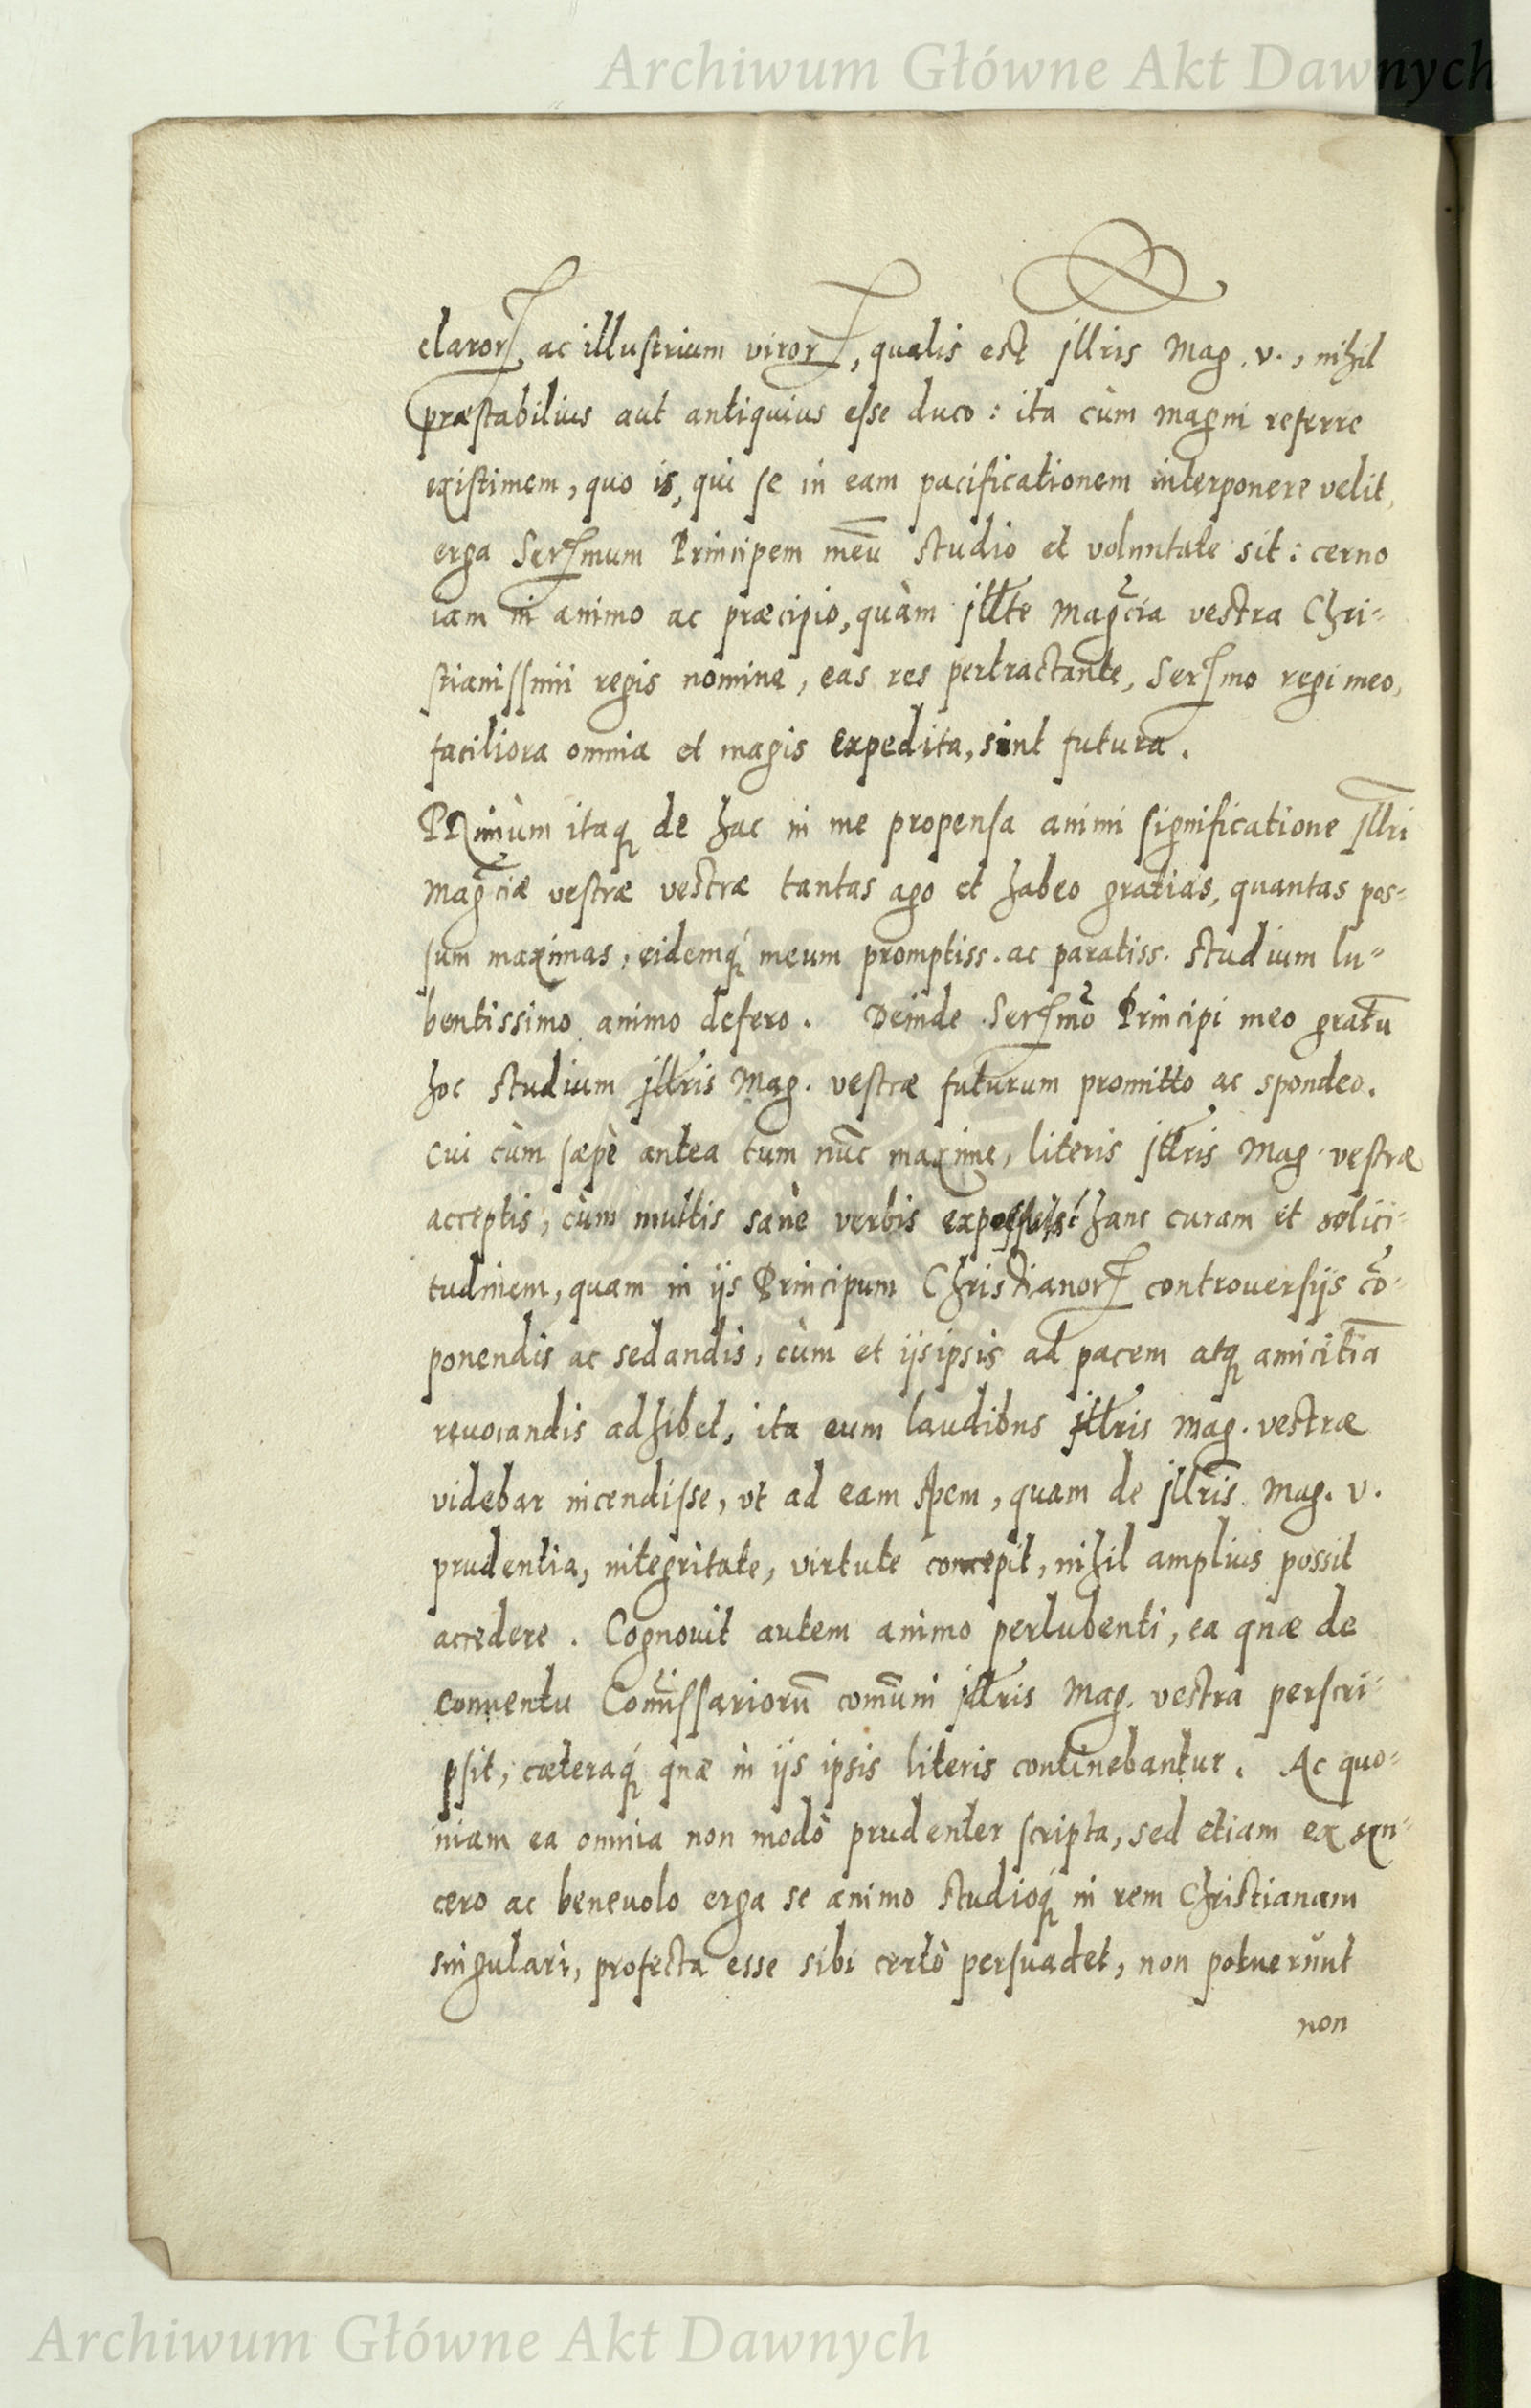 Archiwum Główne Akt Dawnych
claroꝝ, ac illustrium viroꝝ, qualis est jllris Mag. v., nihil
præstabilius aut antiquius esse duco: ita cùm magni referre
existimem, quo is, qui se in eam pacificationem interponere velit,
erga Serꝭmum Principem meū studio et voluntate sit: cerno
iam in animo ac præcipio, quàm jllte Magcia vestra Chri-
stianissimi regis nomine, eas res pertractante, Serꝭmo regi meo,
faciliora omnia et magis expedita, sint futura.
PRimùm itaq de hac in me propensa animi significatione jllri
Magciæ vestræ vestræ tantas ago et habeo gratias, quantas pos-
sum maximas, eidemq́ meum promptiss. ac paratiss. studium lu-
bentissimo animo defero. Deinde Serꝭmo Principi meo gratū
hoc studium jllris Mag. vestræ futurum promitto ac spondeo.
Cui cùm sæpè antea tum nūc maxime, literis jllris Mag. vestræ
acceptis, cùm multis sanè verbis hanc curam et solici-
tudinem, quam in ijs Principum Christianoꝝ controuersijs cō-
ponendis ac sedandis, cùm et ijsipsis ad pacem atq amicitiā
reuocandis adhibet, ita eum laudibus jllris Mag. vestræ
videbar incendisse, vt ad eam spem, quam de jllris Mag. v.
prudentia, integritate, virtute concepit, nihil amplius possit
accedere. Cognouit autem animo perlubenti, ea quæ de
conuentu Comissariorū comuni jllris Mag. vestra perscri-
psit, cæteraq́ quæ in ijs ipsis literis continebantur. Ac quo-
niam ea omnia non modò prudenter scripta, sed etiam ex syn-
cero ac beneuolo erga se animo studioq́ in rem Christianam
singulari, profecta esse sibi certò persuadet, non potuerunt
non
Archiwum Główne Akt Dawnych